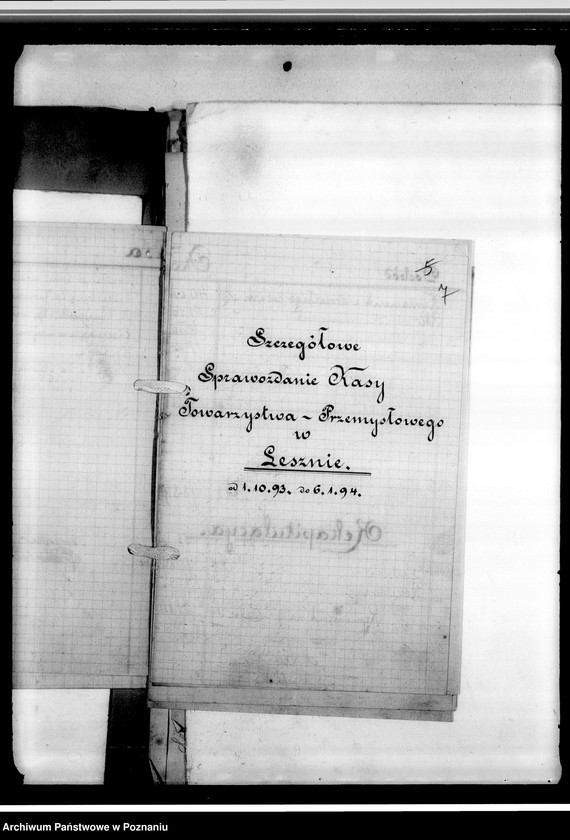 5
7
Szczegółowe
Sprawozdanie Kasy
Towarzystwa - Przemysłowego
w
Lesznie.
od 1.10.93. do 6.1.94.
Rekapitulacya.
Archiwum Państwowe w Poznaniu